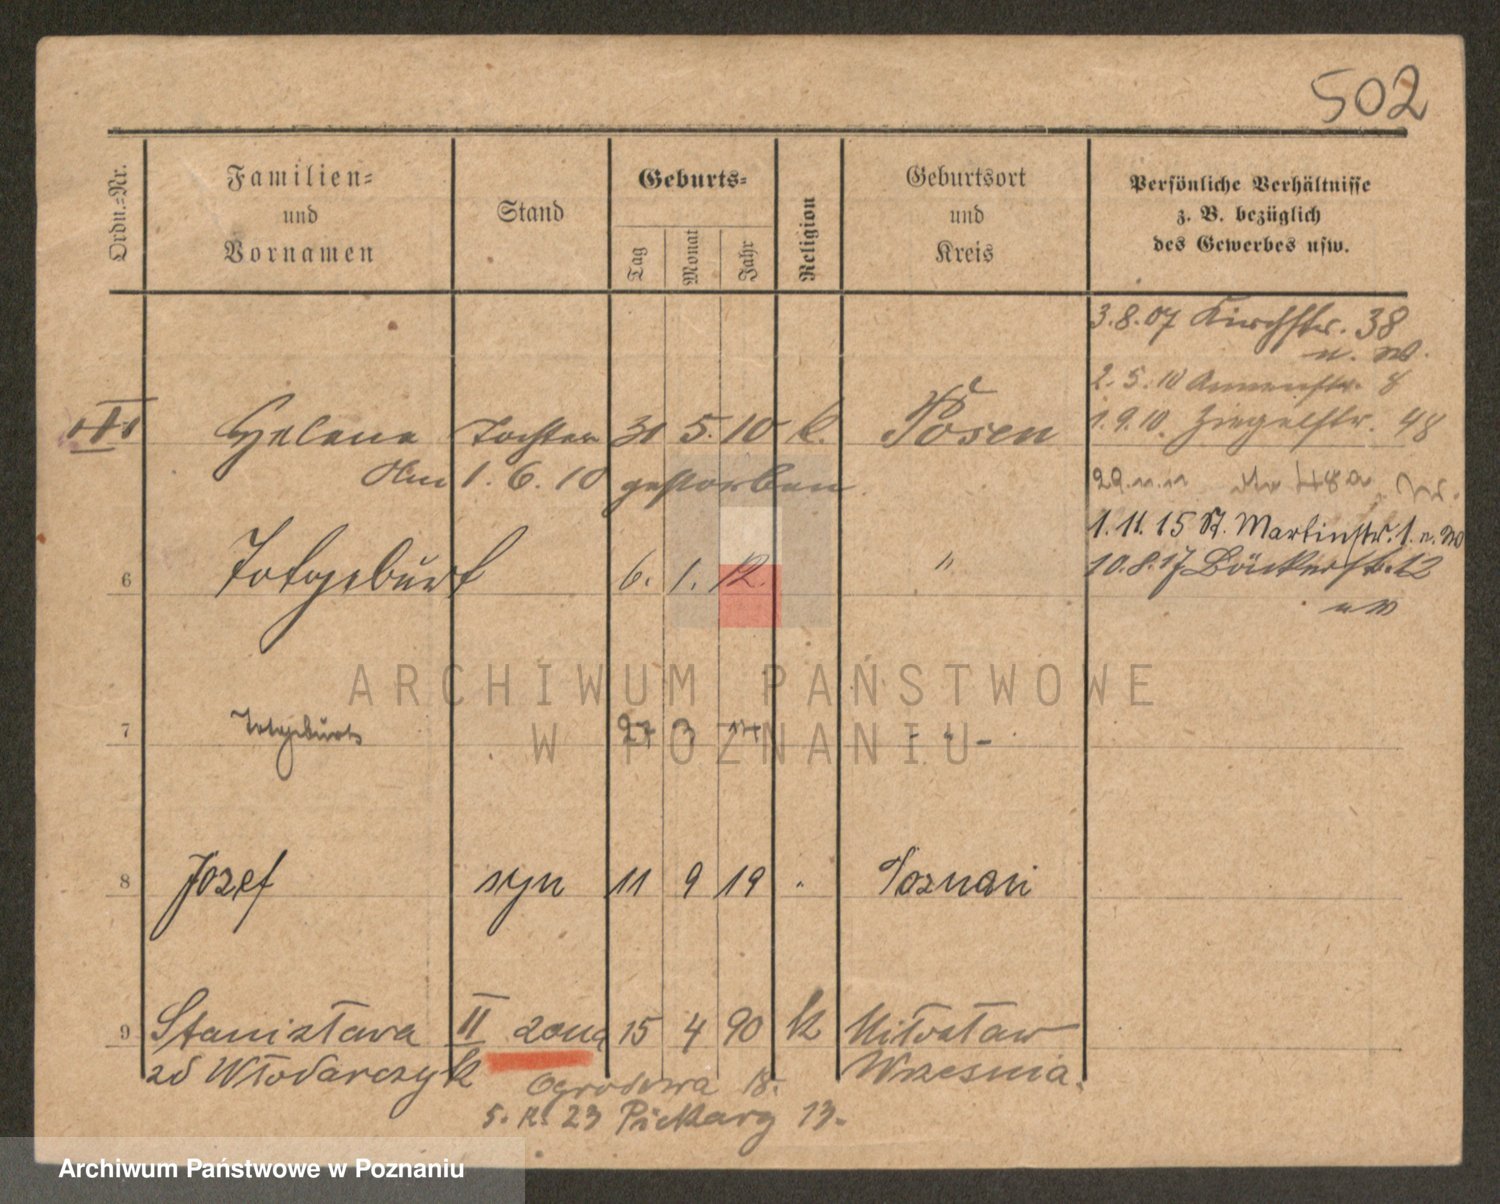 502
Ordn.-Nr.
Familien-
und
Vornamen
Stand
Geburts-
Tag
Monat
Jahr
Religion
Geburtsort
und
Kreis
Persönliche Verhältnisse
z. B. bezüglich
des Gewerbes usw.
3.8.07 Kirchstr. 38
u. W.
2.5.10 Annenstr. 8
Helene Tochter 31 5. 10 k. Posen
1.9.10. Ziegelstr. 48
Am 1.6.10 gestorben
29.11.11 48a
1.11.15 St. Martinstr. 1. u. W
6 Totgeburt 6. 1. 12. "
10.8.17 Bäckerstr. 12
u W
7 Totgeburt 27 3 14 - " -
8 Józef syn 11 9 19 " Poznań
9 Stanisława II żona 15 4 90 k Miłosław
zd Włodarczyk Września.
Ogrodowa 18.
5. 23 Piekary 13.
ARCHIWUM PAŃSTWOWE
W POZNANIU
Archiwum Państwowe w Poznaniu